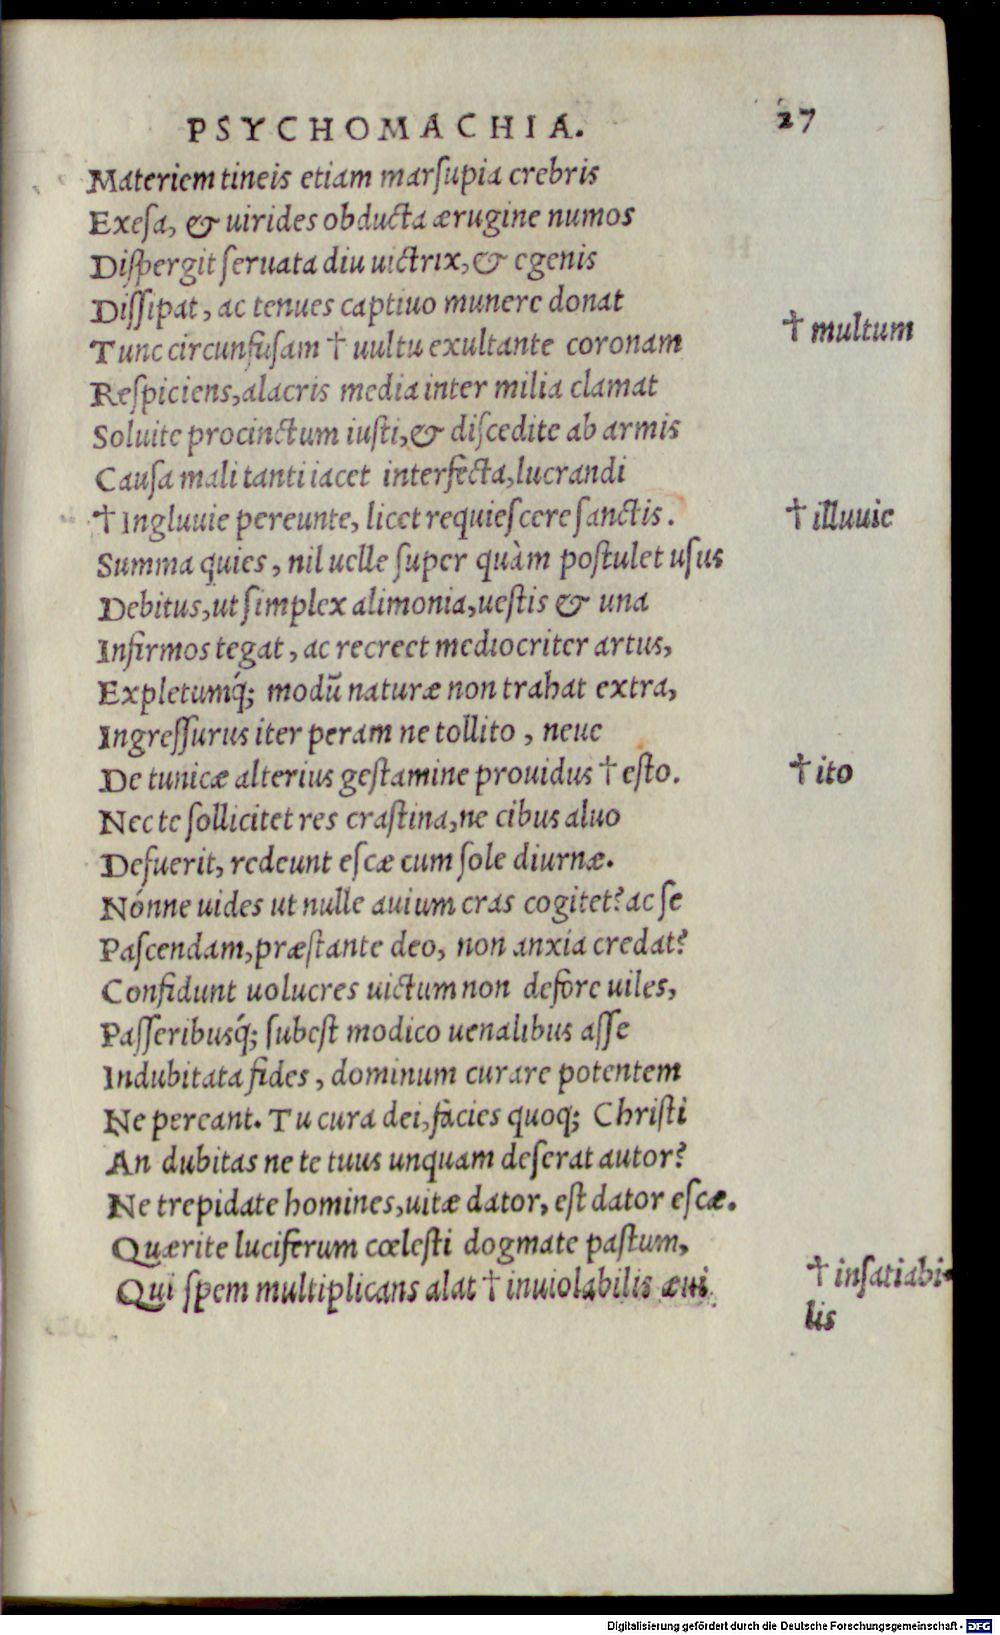 PSYCHOMACHIA. 27
Materiem tineis etiam marſupia crebris
Exeſa, & uirides obducta ærugine numos
Diſpergit ſeruata diu uictrix, & egenis
Diſſipat, ac tenues captiuo munere donat
† multum
Tunc circunfuſam † uultu exultante coronam
Reſpiciens, alacris media inter milia clamat
Soluite procinctum iuſti, & diſcedite ab armis
Cauſa mali tanti iacet interfecta, lucrandi
† Ingluuie pereunte, licet requieſcere ſanctis. † illuuie
Summa quies, nil uelle ſuper quàm poſtulet uſus
Debitus, ut ſimplex alimonia, ueſtis & una
Infirmos tegat, ac recreet mediocriter artus,
Expletumq́; modũ naturæ non trahat extra,
Ingreſſurus iter peram ne tollito, neue
De tunicæ alterius geſtamine prouidus † eſto. † ito
Nec te ſollicitet res craſtina, ne cibus aluo
Defuerit, redeunt eſcæ cum ſole diurnæ.
Nónne uides ut nulle auium cras cogitet? ac ſe
Paſcendam, præſtante deo, non anxia credat?
Confidunt uolucres uictum non defore uiles,
Paſſeribusq́; ſubeſt modico uenalibus aſſe
Indubitata fides, dominum curare potentem
Ne pereant. Tu cura dei, facies quoq; Chriſti
An dubitas ne te tuus unquam deſerat autor?
Ne trepidate homines, uitæ dator, eſt dator eſcæ.
Quærite luciferum cœleſti dogmate paſtum,
Qui ſpem multiplicans alat † inuiolabilis æui. † inſatiabi-
lis
Digitalisierung gefördert durch die Deutsche Forschungsgemeinschaft - DFG